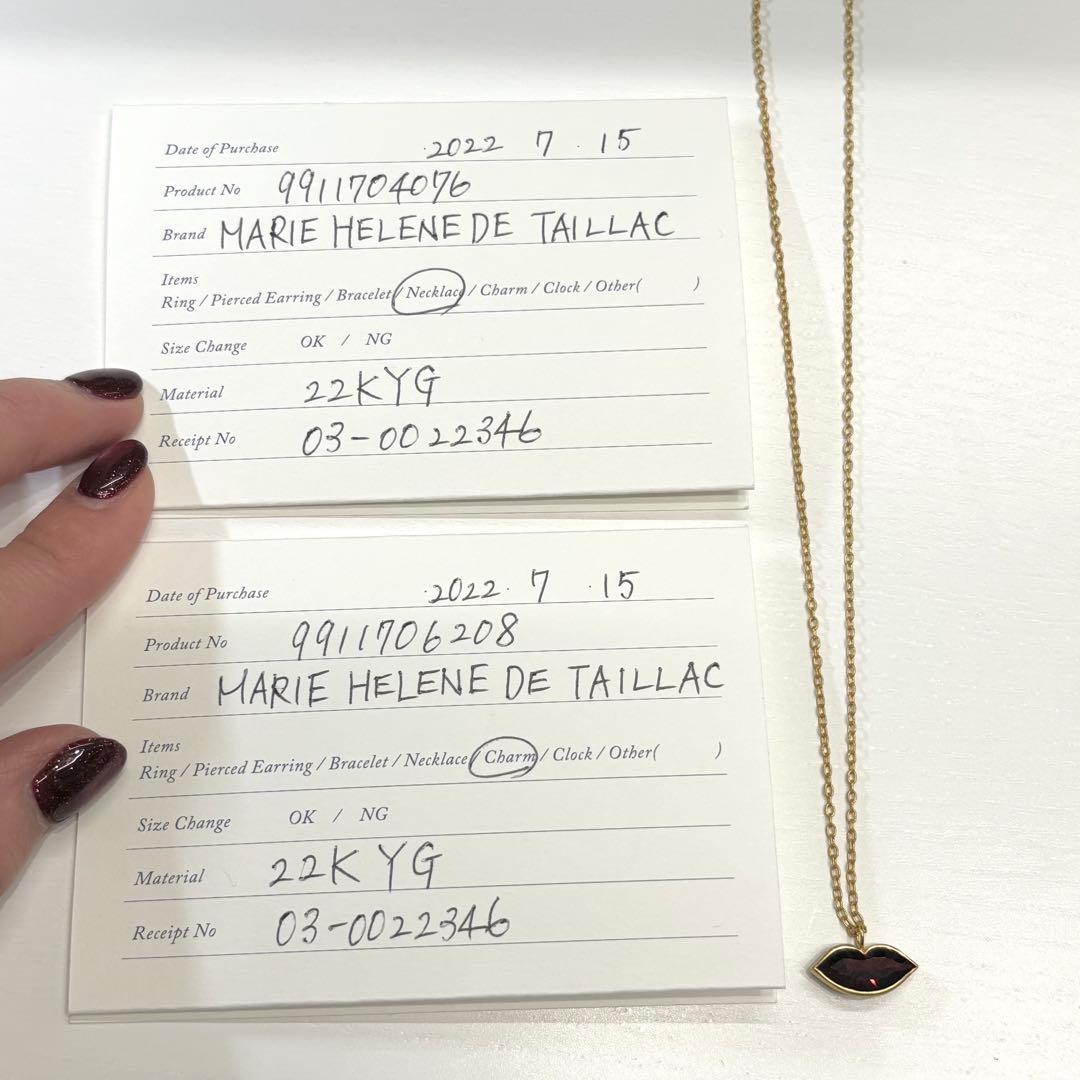 Date of Purchase 2022 7 . 15
Product No 9911704076
Brand MARIE HELENE DE TAILLAC
Items
Ring / Pierced Earring / Bracelet / Necklace / Charm / Clock / Other( )
Size Change OK / NG
Material 22KYG
Receipt No 03-0022346
Date of Purchase 2022. 7 .15
Product No 9911706208
Brand MARIE HELENE DE TAILLAC
Items
Ring / Pierced Earring / Bracelet / Necklace / Charm / Clock / Other( )
Size Change OK / NG
Material 22K YG
Receipt No 03-0022346